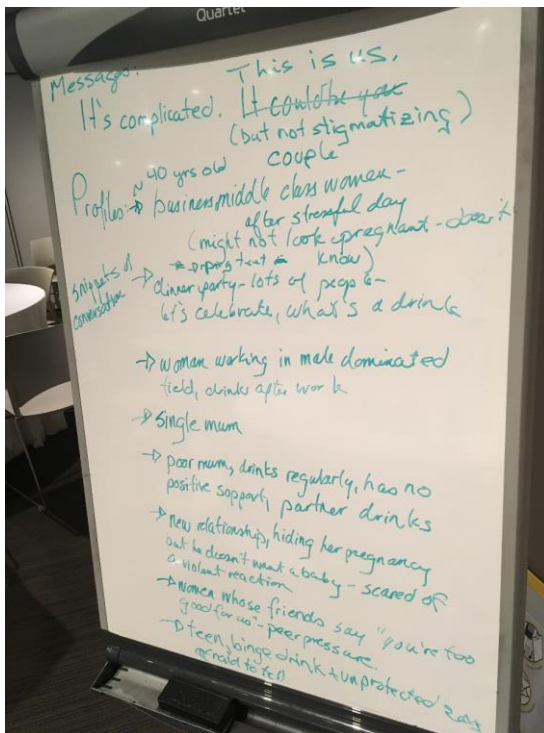 Quartet
Message:
This is us.
It's complicated. It could be you
(but not stigmatizing)
couple
~ 40 yrs old
Profiles: → business middle class women -
after stressful day
(might not look pregnant - doesn't
know)
snippets of
conversation
→ dinner party - lots of people -
let's celebrate, what's a drink
→ woman working in male dominated
field, drinks after work
→ single mum
→ poor mum, drinks regularly, has no
positive support, partner drinks
→ new relationship, hiding her pregnancy
but he doesn't want a baby - scared of
a violent reaction
→ women whose friends say "you're too
good for us" - peer pressure
→ teen, binge drink + unprotected
afraid to tell